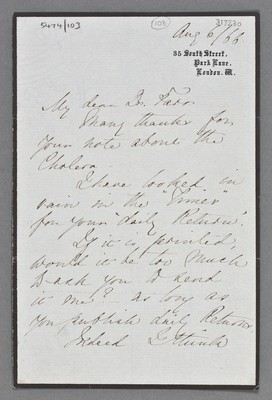 5474/103
(103)
Aug 6/66
35 South Street,
Park Lane,
London. W.
My dear Dr. Farr
Many thanks for
your note about the
Cholera.
I have looked in
vain in the "Times"
for your "daily Return".
If it is printed,
would it be too much
to ask you to send
it me? - as long as
you publish daily Returns
Indeed I think